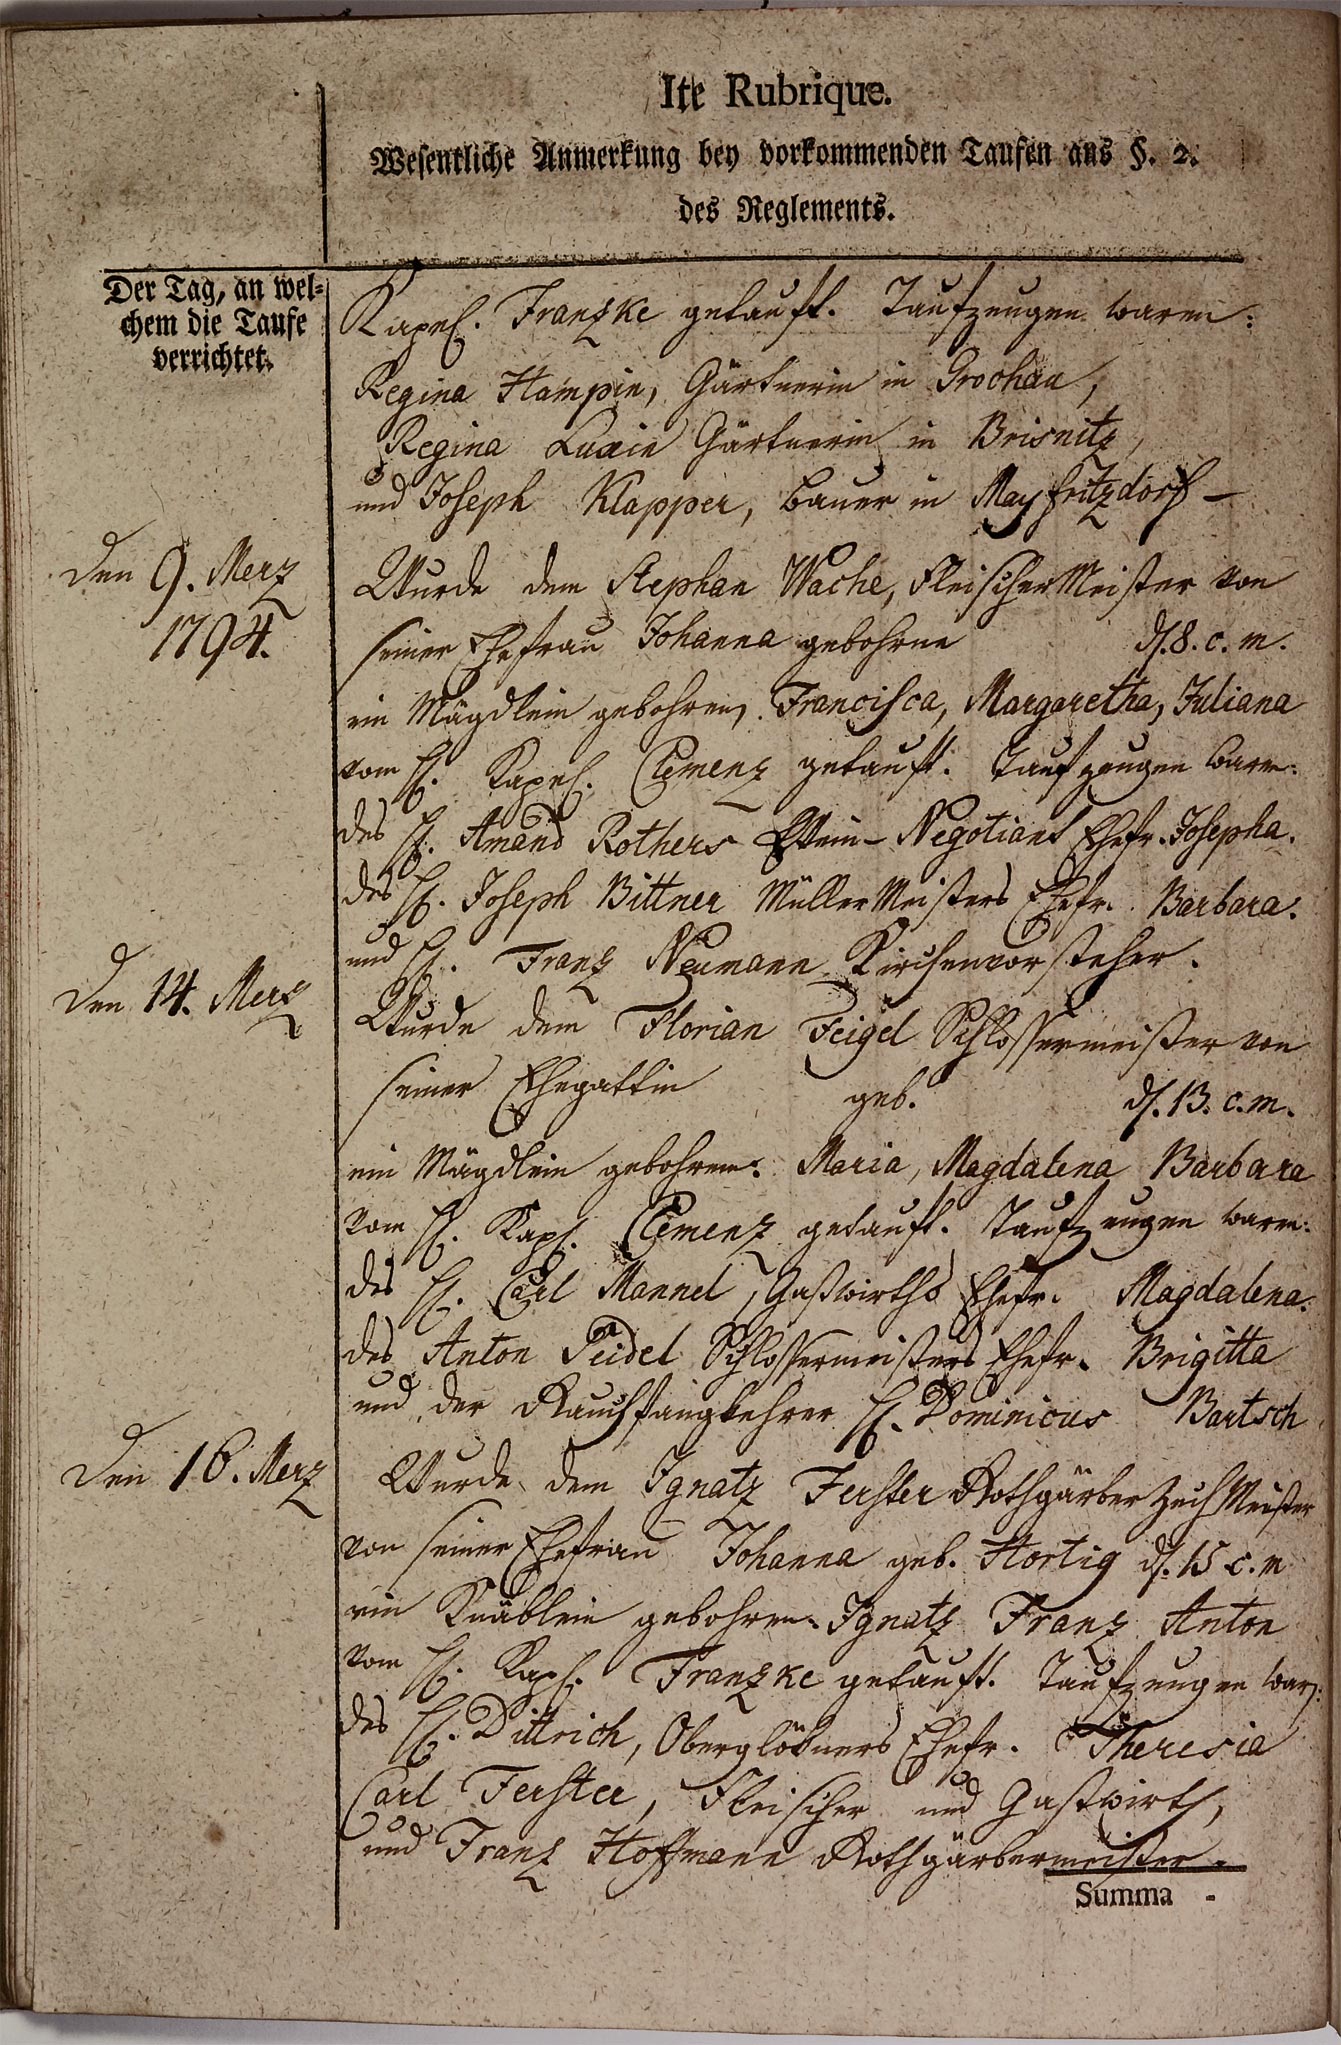 Ite Rubrique.
Wesentliche Anmerkung bey vorkommenden Taufen aus §. 2.
des Reglements.
Der Tag, an wel-
chem die Taufe
verrichtet.
Kapel. Franzke getauft. Taufzeugen waren:
Regina Hampin, Gärtnerin in Grochau,
Regina Luxin Gärtnerin in Brisnitz,
und Joseph Klapper, Bauer in Mayfritzdorf –
Den 9. Merz
1794.
Wurde dem Stephan Wache, FleischerMeister von
seiner Ehefrau Johanna gebohrne d. 8. c. m.
ein Mägdlein gebohren, Francisca, Margaretha, Juliana
vom H. Kapel. Clemenz getauft. Taufzeugen waren:
des H. Amand Rothers Wein-Negotiant Ehefr. Josepha.
des H. Joseph Bittner MüllerMeisters Ehefr. Barbara.
und H. Franz Neumann Kirchenvorsteher.
Den 14. Merz
Wurde dem Florian Feigel Schlossermeister von
seiner Ehegattin geb. d. 13. c. m.
ein Mägdlein gebohren. Maria, Magdalena Barbara
vom H. Kapl. Clemenz getauft. Taufzeugen waren:
des H. Carl Mannel, Gastwirths Ehefr. Magdalena.
des Anton Seidel Schlossermeisters Ehefr. Brigitta
und der Rauchfangkehrer H. Dominicus Bartsch
Den 16. Merz
Wurde dem Ignatz Ferster Rothgärber ZechMeister
von seiner Ehefrau Johanna geb. Hortig d. 15 c. m
ein Knäblein gebohren. Ignatz Franz Anton
vom H. Kapl. Franzke getauft. Taufzeugen war:
des H. Dittrich, Oberglöckners Ehefr. Theresia
Carl Ferster, Fleischer und Gastwirth,
und Franz Hoffmann Rothgärbermeister.
Summa -